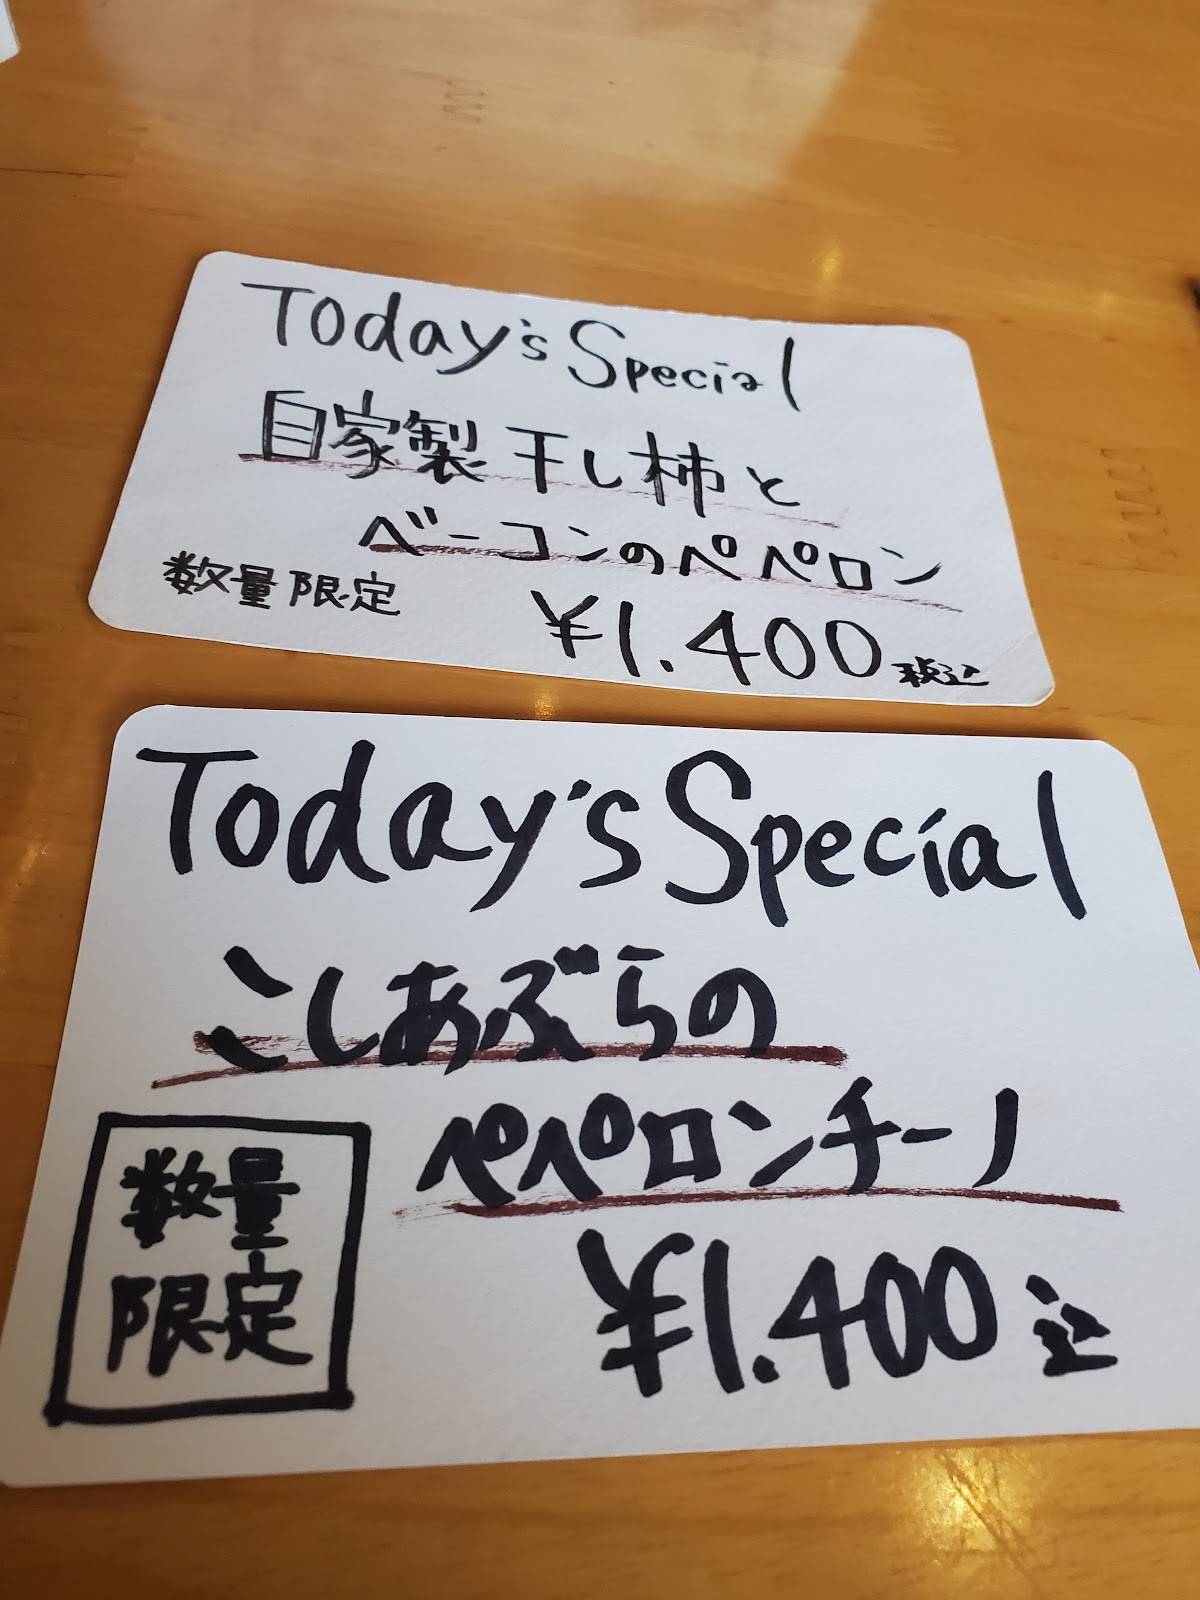 Today's Special
自家製干し柿と
ベーコンのペペロン
数量限定
¥1.400税込
Today's Special
こしあぶらの
ペペロンチーノ
数量
限定
¥1.400込